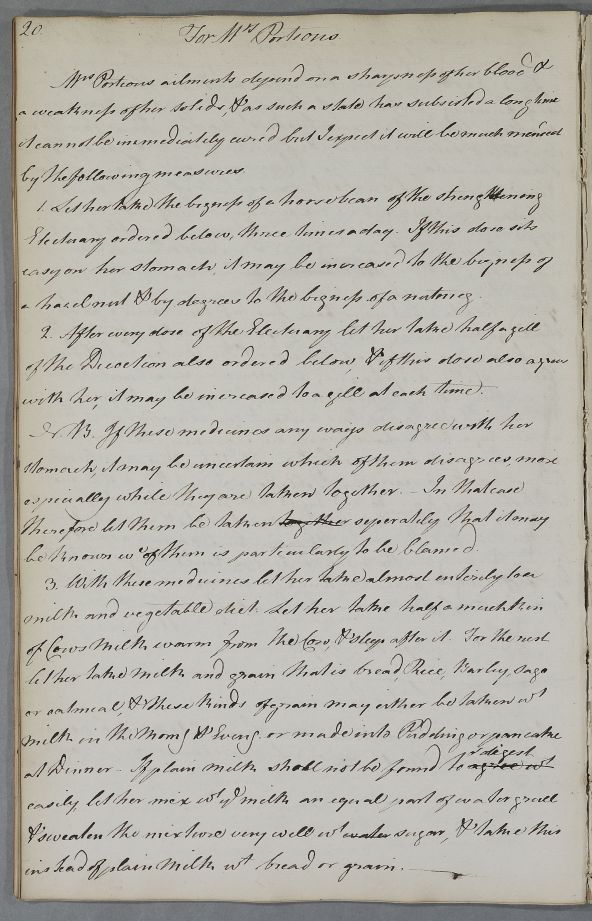 20
For Mrs Porteous
Mrs Porteous ailments depend on a sharpness of her blood &
a weakness of her solids, & as such a state has subsisted a long time
it cannot be immediately cured but I expect it will be much
by the following measures
1. Let her take the bigness of a horse bean of the strengthening
Electuary ordered below, three times a day. If this dose sits
easy on her stomach, it may be increased to the bigness of
a hazel nut & by degrees to the bigness of a nutmeg.
2. After every dose of the Electuary let her take half a gill
of the Decoction also ordered below & if this dose also agrees
with her, it may be increased to a gill at each time.
N.B. If these medicines any ways disagree with her
stomach, it may be uncertain which of them disagrees, more
especially while they are taken together. – In that case
therefore let them be taken together seperately that it may
be known wc of them is particularly to be blamed.
3. With these medicines let her take almost entirely to a
milk and vegetable diet. Let her take half a mutchkin
of Cows Milk warm from the Cow, & sleep after it. For the rest
let her take milk and grain that is bread, Rice, Barley, sago
or oatmeal, & these kinds of grain may either be taken wt
milk in the Morng & Eveng. or made into Pudding or pancake
at Dinner – If plain milk shall not be found to agree wt digest
easily, let her mix wt ye milk an equal part of water gruel
& sweeten the mixture very well wt water sugar, & take this
instead of plain Milk wt bread or grain.